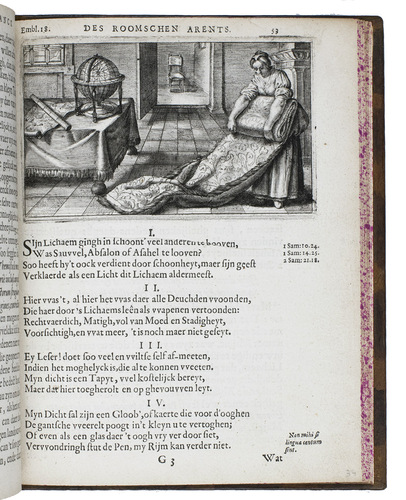 Embl. 18. DES ROOMSCHEN ARENTS. 53
I.
SIjn Lichaem gingh in schoont' veel anderen te booven,
Was Sauvvel, Absalon of Asahel te looven? 1 Sam: 10.24.
Soo heeft hy't oock verdient door schoonheyt, maer sijn geest 1 Sam: 14.25.
Verklaerde als een Licht dit Lichaem aldermeest. 2 Sam: 21.18.
II.
Hier vvas't, al hier het vvas daer alle Deuchden vvoonden,
Die haer door's Lichaems leên als vvapenen vertoonden:
Rechtvaerdich, Matigh, vol van Moed en Stadigheyt,
Voorsichtigh, en vvat meer, 't is noch maer niet geseyt.
III.
Ey Leser! doet soo veel en vviltse self af-meeten,
Indien het moghelyck is, die al te konnen vveeten.
Myn dicht is een Tapyt, veel kostelijck bereyt,
Maer dat hier toegherolt en op ghevouvven leyt.
IV.
Myn Dicht sal zijn een Gloob', of kaerte die voor d'ooghen
De gantsche vveerelt poogt in't kleyn u te vertoghen;
Of even als een glas daer 't oogh vry ver door siet, Non mihi si
Vervvondringh stut de Pen, my Rijm kan verder niet. lingua centum
sint.
G 3 Wat